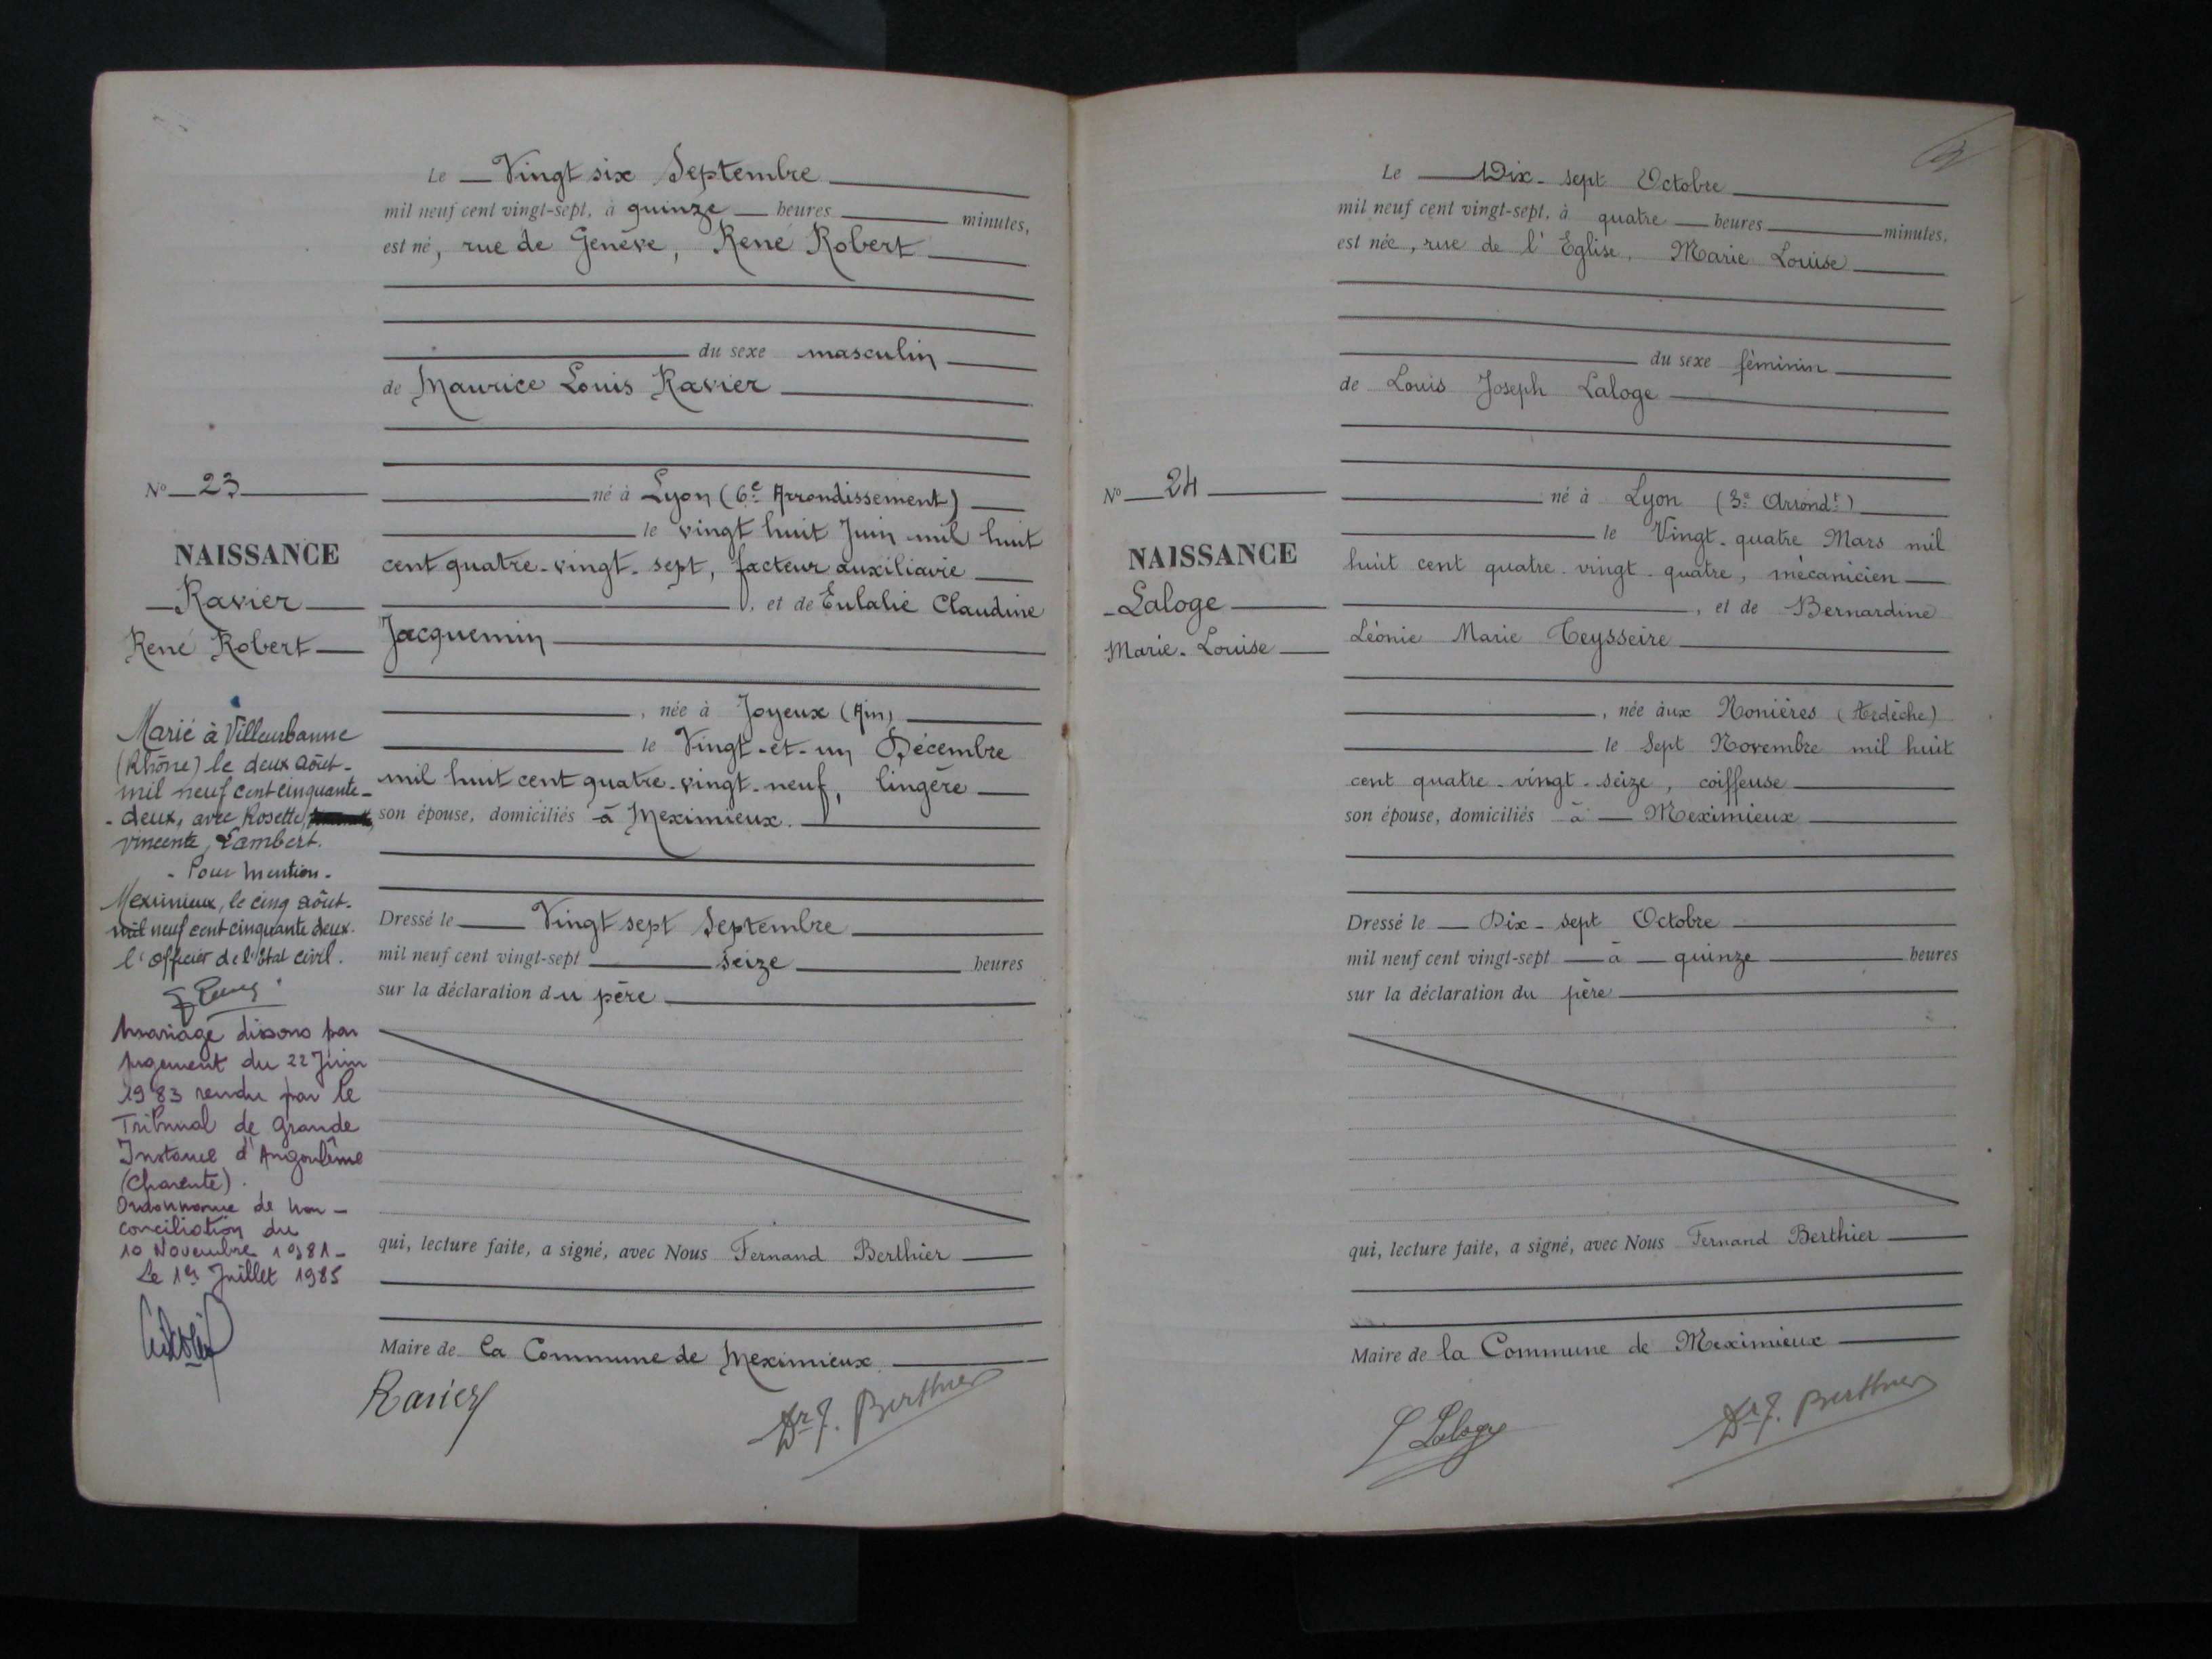 Le Vingt six Septembre
mil neuf cent vingt-sept, à quinze heures minutes,
est né, rue de Genève, René Robert
du sexe masculin
de Maurice Louis Ravier
né à Lyon (6e Arrondissement)
le vingt huit Juin mil huit
cent quatre-vingt-sept, facteur auxiliaire
, et de Eulalie Claudine
Jacquemin
, née à Joyeux (Ain)
le Vingt-et-un Décembre
mil huit cent quatre-vingt-neuf, lingère
son épouse, domiciliés à Meximieux.
Dressé le Vingt sept Septembre
mil neuf cent vingt-sept seize heures
sur la déclaration du père
qui, lecture faite, a signé, avec Nous Fernand Berthier
Maire de la Commune de Meximieux
Ravier
Dr F. Berthier
No 23
NAISSANCE
Ravier
René Robert
Marié à Villeurbanne
(Rhône) le deux août-
mil neuf cent cinquante-
-deux, avec Rosette,
vincente, Lambert.
- Pour mention -
Meximieux, le cinq août-
mil neuf cent cinquante deux.
l'officier de l'Etat civil.
Mariage dissous par
jugement du 22 Juin
1983 rendu par le
Tribunal de Grande
Instance d'Angoulême
(Charente).
Ordonnance de non-
conciliation du
10 Novembre 1981-
Le 1er Juillet 1985
Le Dix-sept Octobre
mil neuf cent vingt-sept, à quatre heures minutes.
est née, rue de l'Eglise, Marie Louise
du sexe féminin
de Louis Joseph Laloge
né à Lyon (3e Arrondt)
le Vingt-quatre Mars mil
huit cent quatre-vingt-quatre, mécanicien
, et de Bernardine
Léonie Marie Teysseire
, née aux Nonières (Ardèche)
le Sept Novembre mil huit
cent quatre-vingt-seize, coiffeuse
son épouse, domiciliés à Meximieux
Dressé le Dix-sept Octobre
mil neuf cent vingt-sept à quinze heures
sur la déclaration du père
qui, lecture faite, a signé, avec Nous Fernand Berthier
Maire de la Commune de Meximieux
L Laloge
Dr F. Berthier
No 24
NAISSANCE
Laloge
Marie-Louise